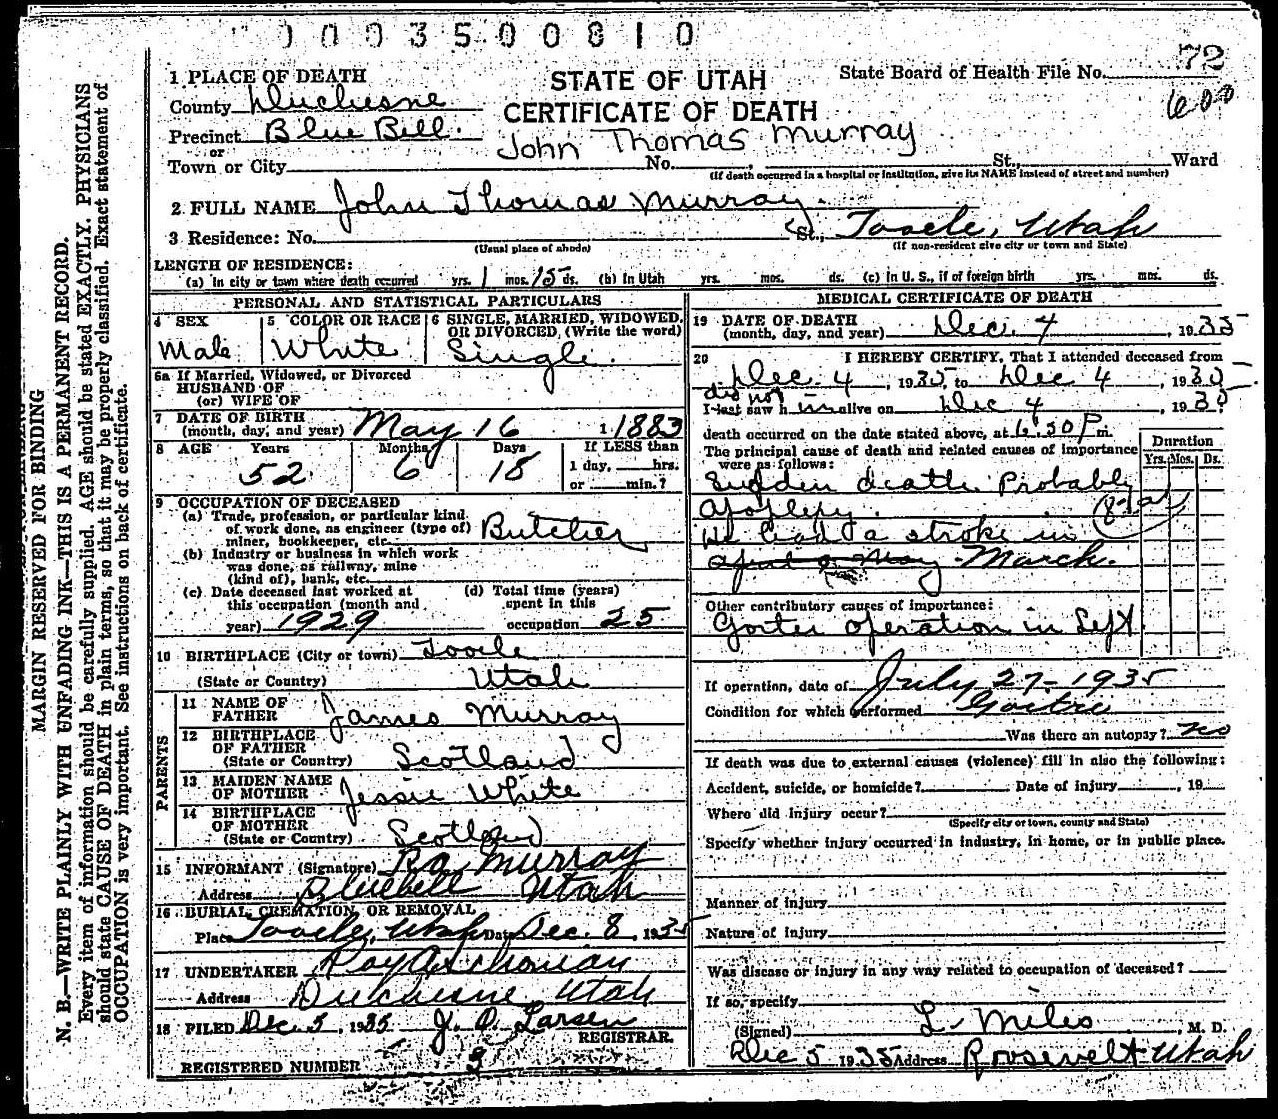 0003500810
72
1 PLACE OF DEATH
STATE OF UTAH
State Board of Health File No.
County Duchesne
CERTIFICATE OF DEATH
600
Precinct Blue Bell.
John Thomas Murray
or
Town or City No. , St., Ward
(If death occurred in a hospital or institution, give its NAME instead of street and number)
2 FULL NAME John Thomas Murray.
3 Residence: No. St., Tooele, Utah
(Usual place of abode) (If non-resident give city or town and State)
LENGTH OF RESIDENCE:
(a) In city or town where death occurred yrs. 1 mos. 15 ds. (b) In Utah yrs. mos. ds. (c) In U. S., if of foreign birth yrs. mos. ds.
PERSONAL AND STATISTICAL PARTICULARS
4 SEX 5 COLOR OR RACE 6 SINGLE, MARRIED, WIDOWED,
OR DIVORCED, (Write the word)
Male White Single.
6a If Married, Widowed, or Divorced
HUSBAND OF
(or) WIFE OF
7 DATE OF BIRTH
(month, day, and year) May 16 1883
8 AGE Years Months Days If LESS than
52 6 18 1 day, hrs.
or min.?
9 OCCUPATION OF DECEASED
(a) Trade, profession, or particular kind
of work done, as engineer (type of)
miner, bookkeeper, etc. Butcher
(b) Industry or business in which work
was done, as railway, mine
(kind of), bank, etc.
(c) Date deceased last worked at
this occupation (month and
year) 1929
(d) Total time (years)
spent in this
occupation 25
10 BIRTHPLACE (City or town) Tooele
(State or Country) Utah
PARENTS
11 NAME OF
FATHER James Murray
12 BIRTHPLACE
OF FATHER
(State or Country) Scotland
13 MAIDEN NAME
OF MOTHER Jessie White
14 BIRTHPLACE
OF MOTHER
(State or Country) Scotland
15 INFORMANT (Signature) Murray
Address Bluebell Utah
16 BURIAL, CREMATION, OR REMOVAL
Place Tooele, Utah Date Dec. 8, 1935
17 UNDERTAKER Roy
Address Duchesne, Utah
18 FILED Dec. 5, 1935 J. O. Larsen
REGISTRAR.
REGISTERED NUMBER 3
MEDICAL CERTIFICATE OF DEATH
19 DATE OF DEATH
(month, day, and year) Dec. 4, 1935
20 I HEREBY CERTIFY, That I attended deceased from
Dec. 4, 1935, to Dec 4, 1935
did not
I last saw h im alive on Dec 4, 193
death occurred on the date stated above, at 6:30 P m.
The principal cause of death and related causes of importance
were as follows:
Duration
Yrs. Mos. Ds.
Sudden death Probably
apoplexy.
He had a stroke in
April or May March.
Other contributory causes of importance:
Goiter operation in Sept
If operation, date of July 27-1935
Condition for which performed Goitre
Was there an autopsy? no
If death was due to external causes (violence) fill in also the following:
Accident, suicide, or homicide? Date of injury , 19
Where did injury occur?
(Specify city or town, county and State)
Specify whether injury occurred in industry, in home, or in public place.
Manner of injury
Nature of injury
Was disease or injury in any way related to occupation of deceased?
If so, specify
(Signed) L. Miles, M. D.
Dec 5 1935 Address Roosevelt Utah
MARGIN RESERVED FOR BINDING
N. B.—WRITE PLAINLY WITH UNFADING INK—THIS IS A PERMANENT RECORD.
Every item of information should be carefully supplied. AGE should be stated EXACTLY. PHYSICIANS
should state CAUSE OF DEATH in plain terms, so that it may be properly classified. Exact statement of
OCCUPATION is very important. See instructions on back of certificate.